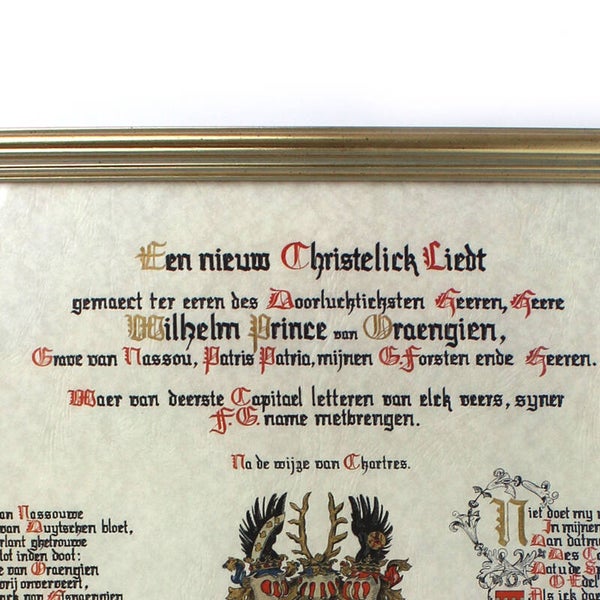 Een nieuw Christelick Liedt
gemaect ter eeren des Doorluchticksten Heeren, Heere
Wilhelm Prince van Oraengien,
Grave van Nassou, Patris Patria, mijnen G. Forsten ende Heeren.
Waer van deerste Capitael letteren van elck veers, syner
F. G. name metbrengen.
Na de wijze van Chartres.
an Nassouwe
van Duytschen bloet,
rlant ghetrouwe
lot inden doot:
e van Oraengien
vrij onverveert,
nck van Hispaengien
Niet doet my m
In mijner
Dan datme
Des Co
Dat u de S
O Edel
Als ick da